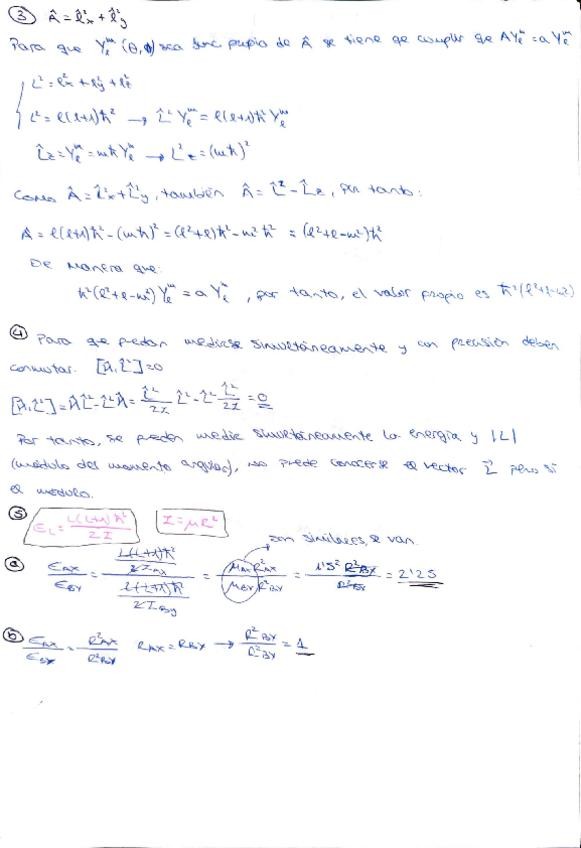 ③ Â = l̂²x + l̂²y
Para que Yₗᵐ(θ,ϕ) sea func propia de Â se tiene qe cumplir qe AYₗᵐ = a Yₗᵐ
L² = l²x + l²y + l²z
L² = l(l+1)ħ² → L̂² Yₗᵐ = l(l+1)ħ² Yₗᵐ
L̂z = Yₗᵐ = mħ Yₗᵐ → L²z = (mħ)²
Como Â = L̂²x + L̂²y, también Â = L̂² - L̂z, por tanto:
A = l(l+1)ħ² - (mħ)² = (l²+l)ħ² - m²ħ² = (l²+l-m²)ħ²
De manera que:
ħ²(l²+l-m²) Yₗᵐ = a Yₗᵐ, por tanto, el valor propio es ħ²(l²+l-m²)
④ Para qe puedan medirse simultáneamente y con precisión deben
conmutar. [Ĥ, L̂²] = 0
[Ĥ, L̂²] = ĤL̂² - L̂²Ĥ = L̂²/2I L̂² - L̂² L̂²/2I = 0
Por tanto, se pueden medir simultáneamente la energía y |L|
(módulo del momento angular), no puede conocerse el vector L⃗ pero sí
el módulo.
⑤ EL = L(L+1)ħ²/2I I = μR²
son similares, se van.
ⓐ EAX/EBY = (L(L+1)ħ²/2IAX)/(L(L+1)ħ²/2IBY) = μAX R²AX/μBY R²BY = 1'5² R²BY/R²BY = 2'25
ⓑ EAX/EBY = R²AX/R²BY RAX = RBY → R²BY/R²BY = 1